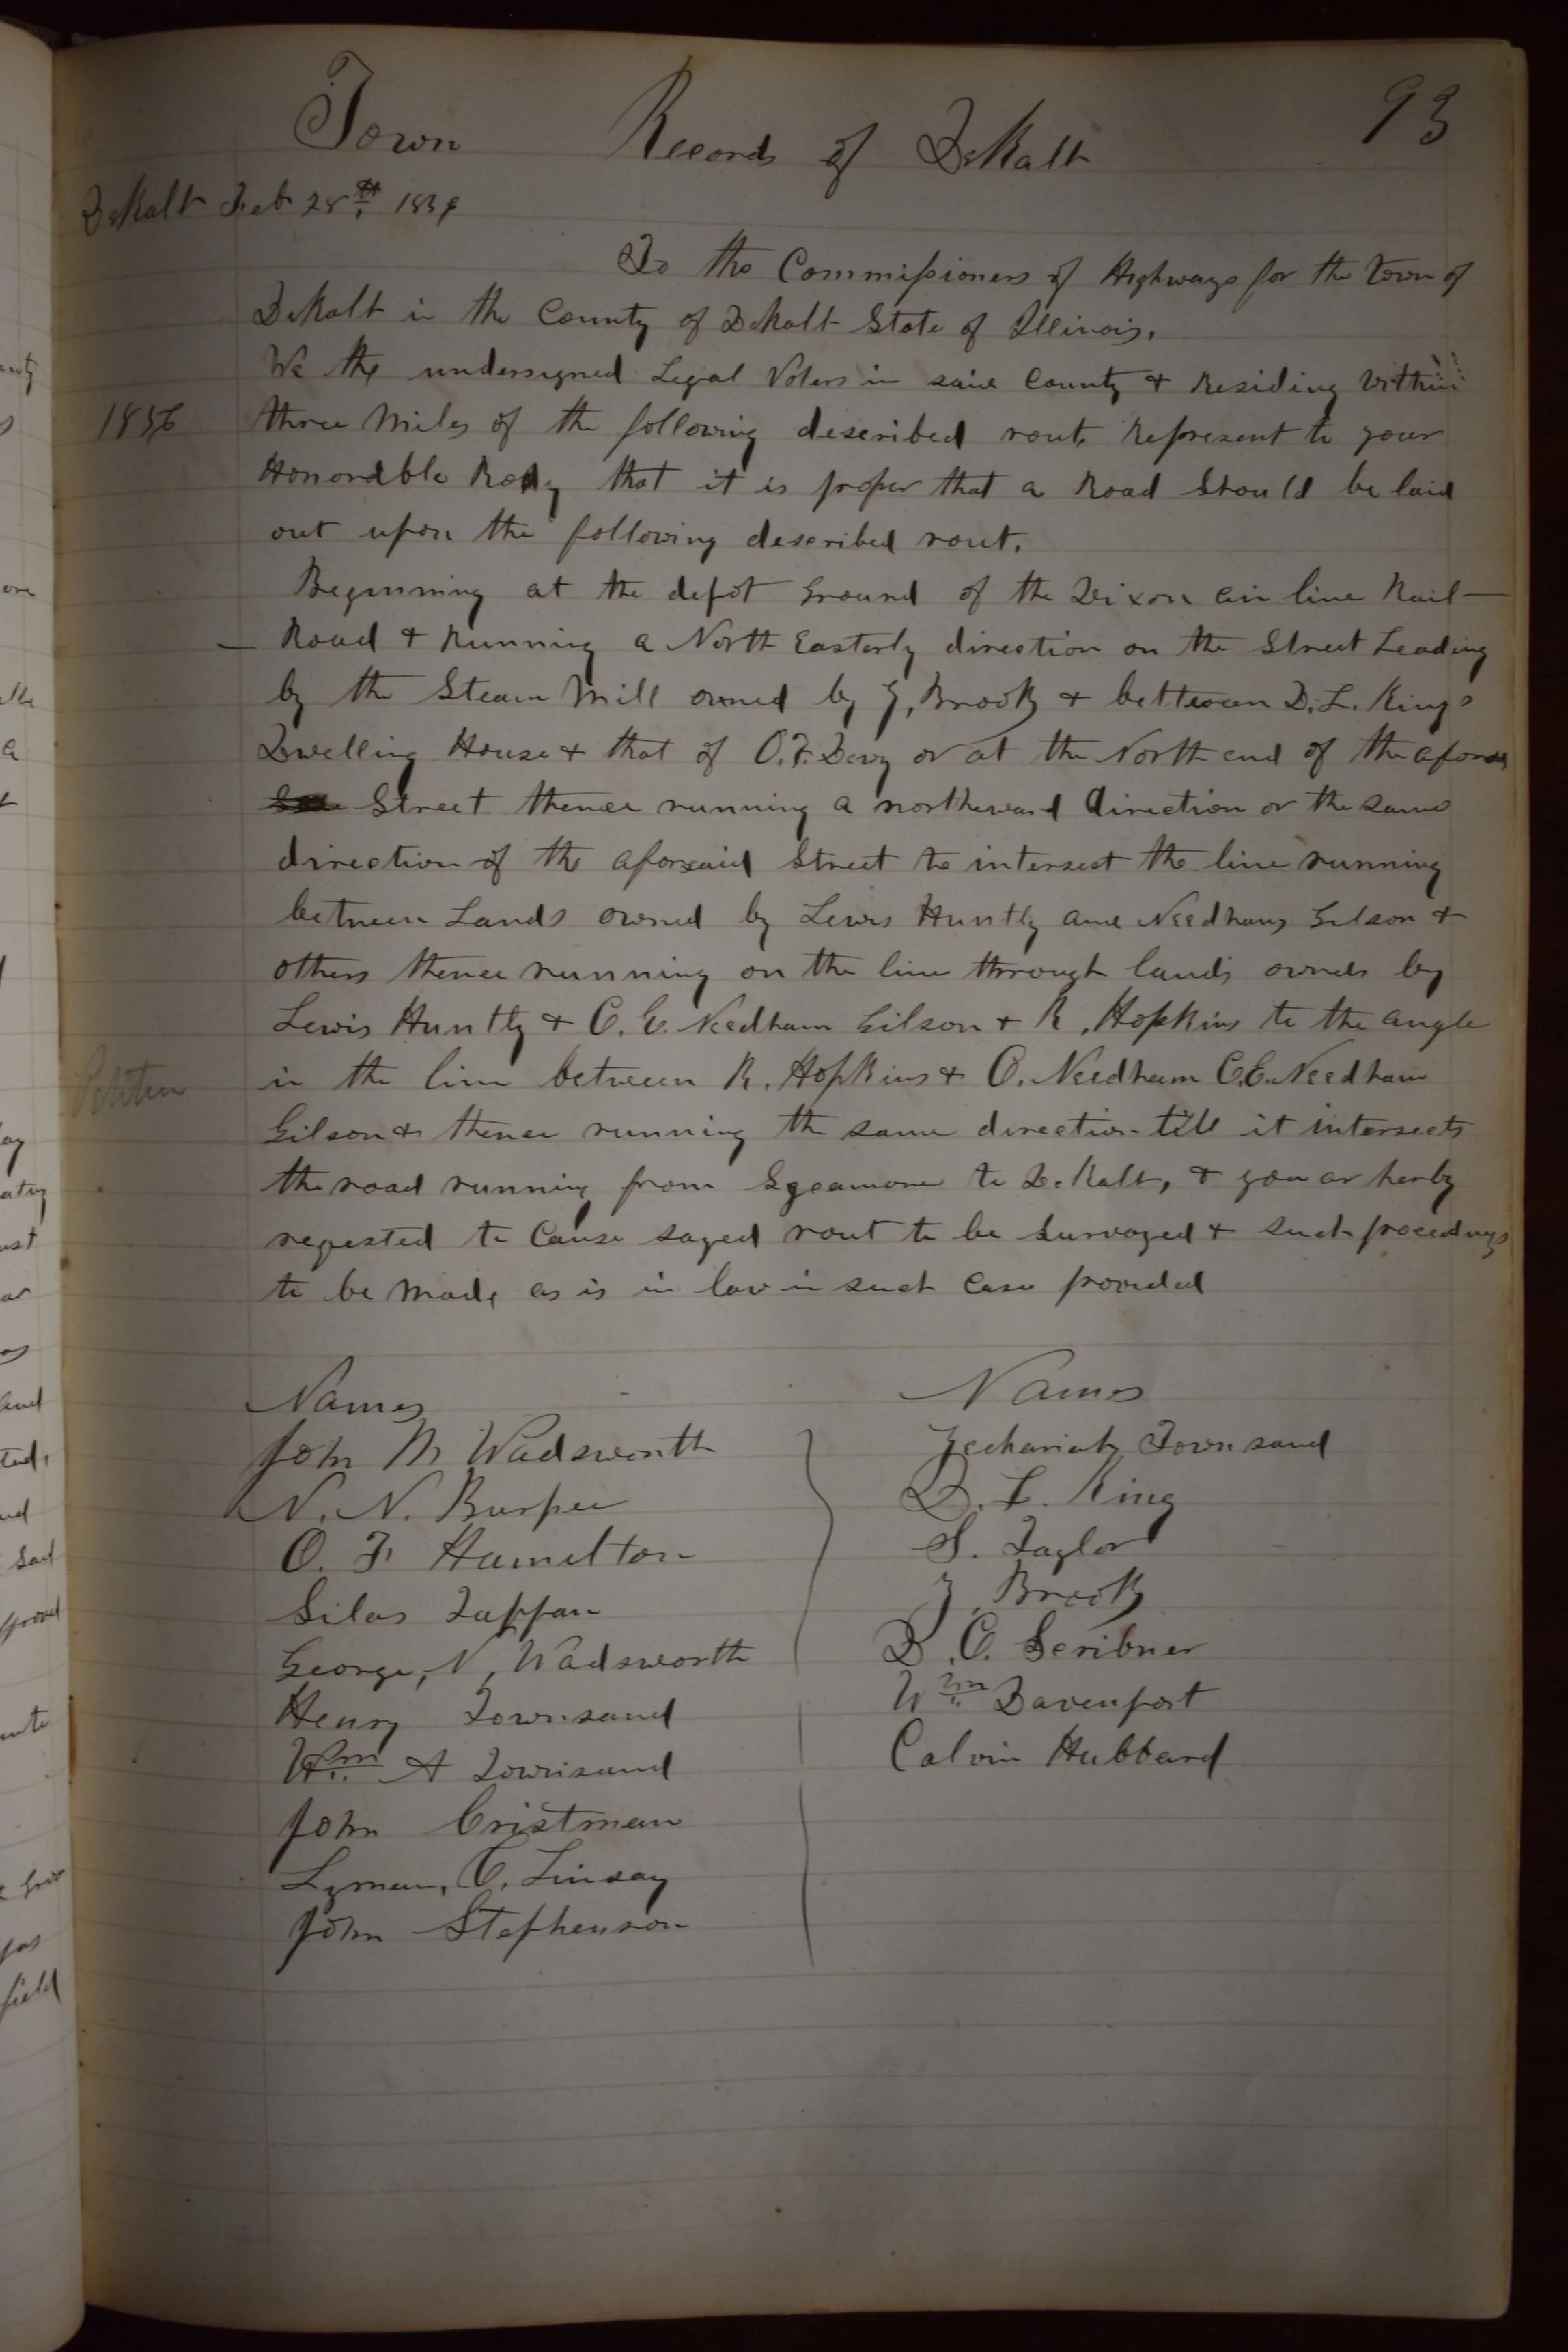 Town Records of DeKalb 93
DeKalb Feb 28th 185
To the Commissioners of Highways for the Town of
DeKalb in the County of DeKalb State of Illinois.
We the undersigned Legal Voters in said County & Residing Within
1856 three Miles of the following described rout, Represent to your
Honorable Body that it is proper that a Road Should be laid
out upon the following described rout.
Beginning at the depot Ground of the Dixon air line Rail-
- Road & Running a North Easterly direction on the Street Leading
by the Steam Mill owned by Z, Brooks & bettween D. L. Kings
Dwelling House & that of O. F. or at the North end of the afores
Street thence running a northeward direction or the same
direction of the aforesaid Street to intersect the line running
between Lands owned by Lewis Huntly and Needhams Gilson &
others thence running on the line through lands owned by
Lewis Huntly & C. E. Needham Gilson & R. Hopkins to the angle
in the line between R. Hopkins & O. Needham C.E. Needham
Petition
Gilson & thence running the same direction till it intersects
the road running from Sycamore to DeKalb, & you ar herby
reqested to Cause sayed rout to be Survayed & such procedings
to be Made as is in law in such case provided
Names Names
John M Wadsworth Zechariah Townsand
N. N. Burpee D. L. King
O. F Hamelton S. Taylor
Silas Tappan Z, Brooks
George, N, Wadsworth D. C. Scribner
Henry Townsand Wm Davenport
Wm A Townsand Calvin Hubbard
John Cristman
Lyman, C. Linsay
John Stephenson